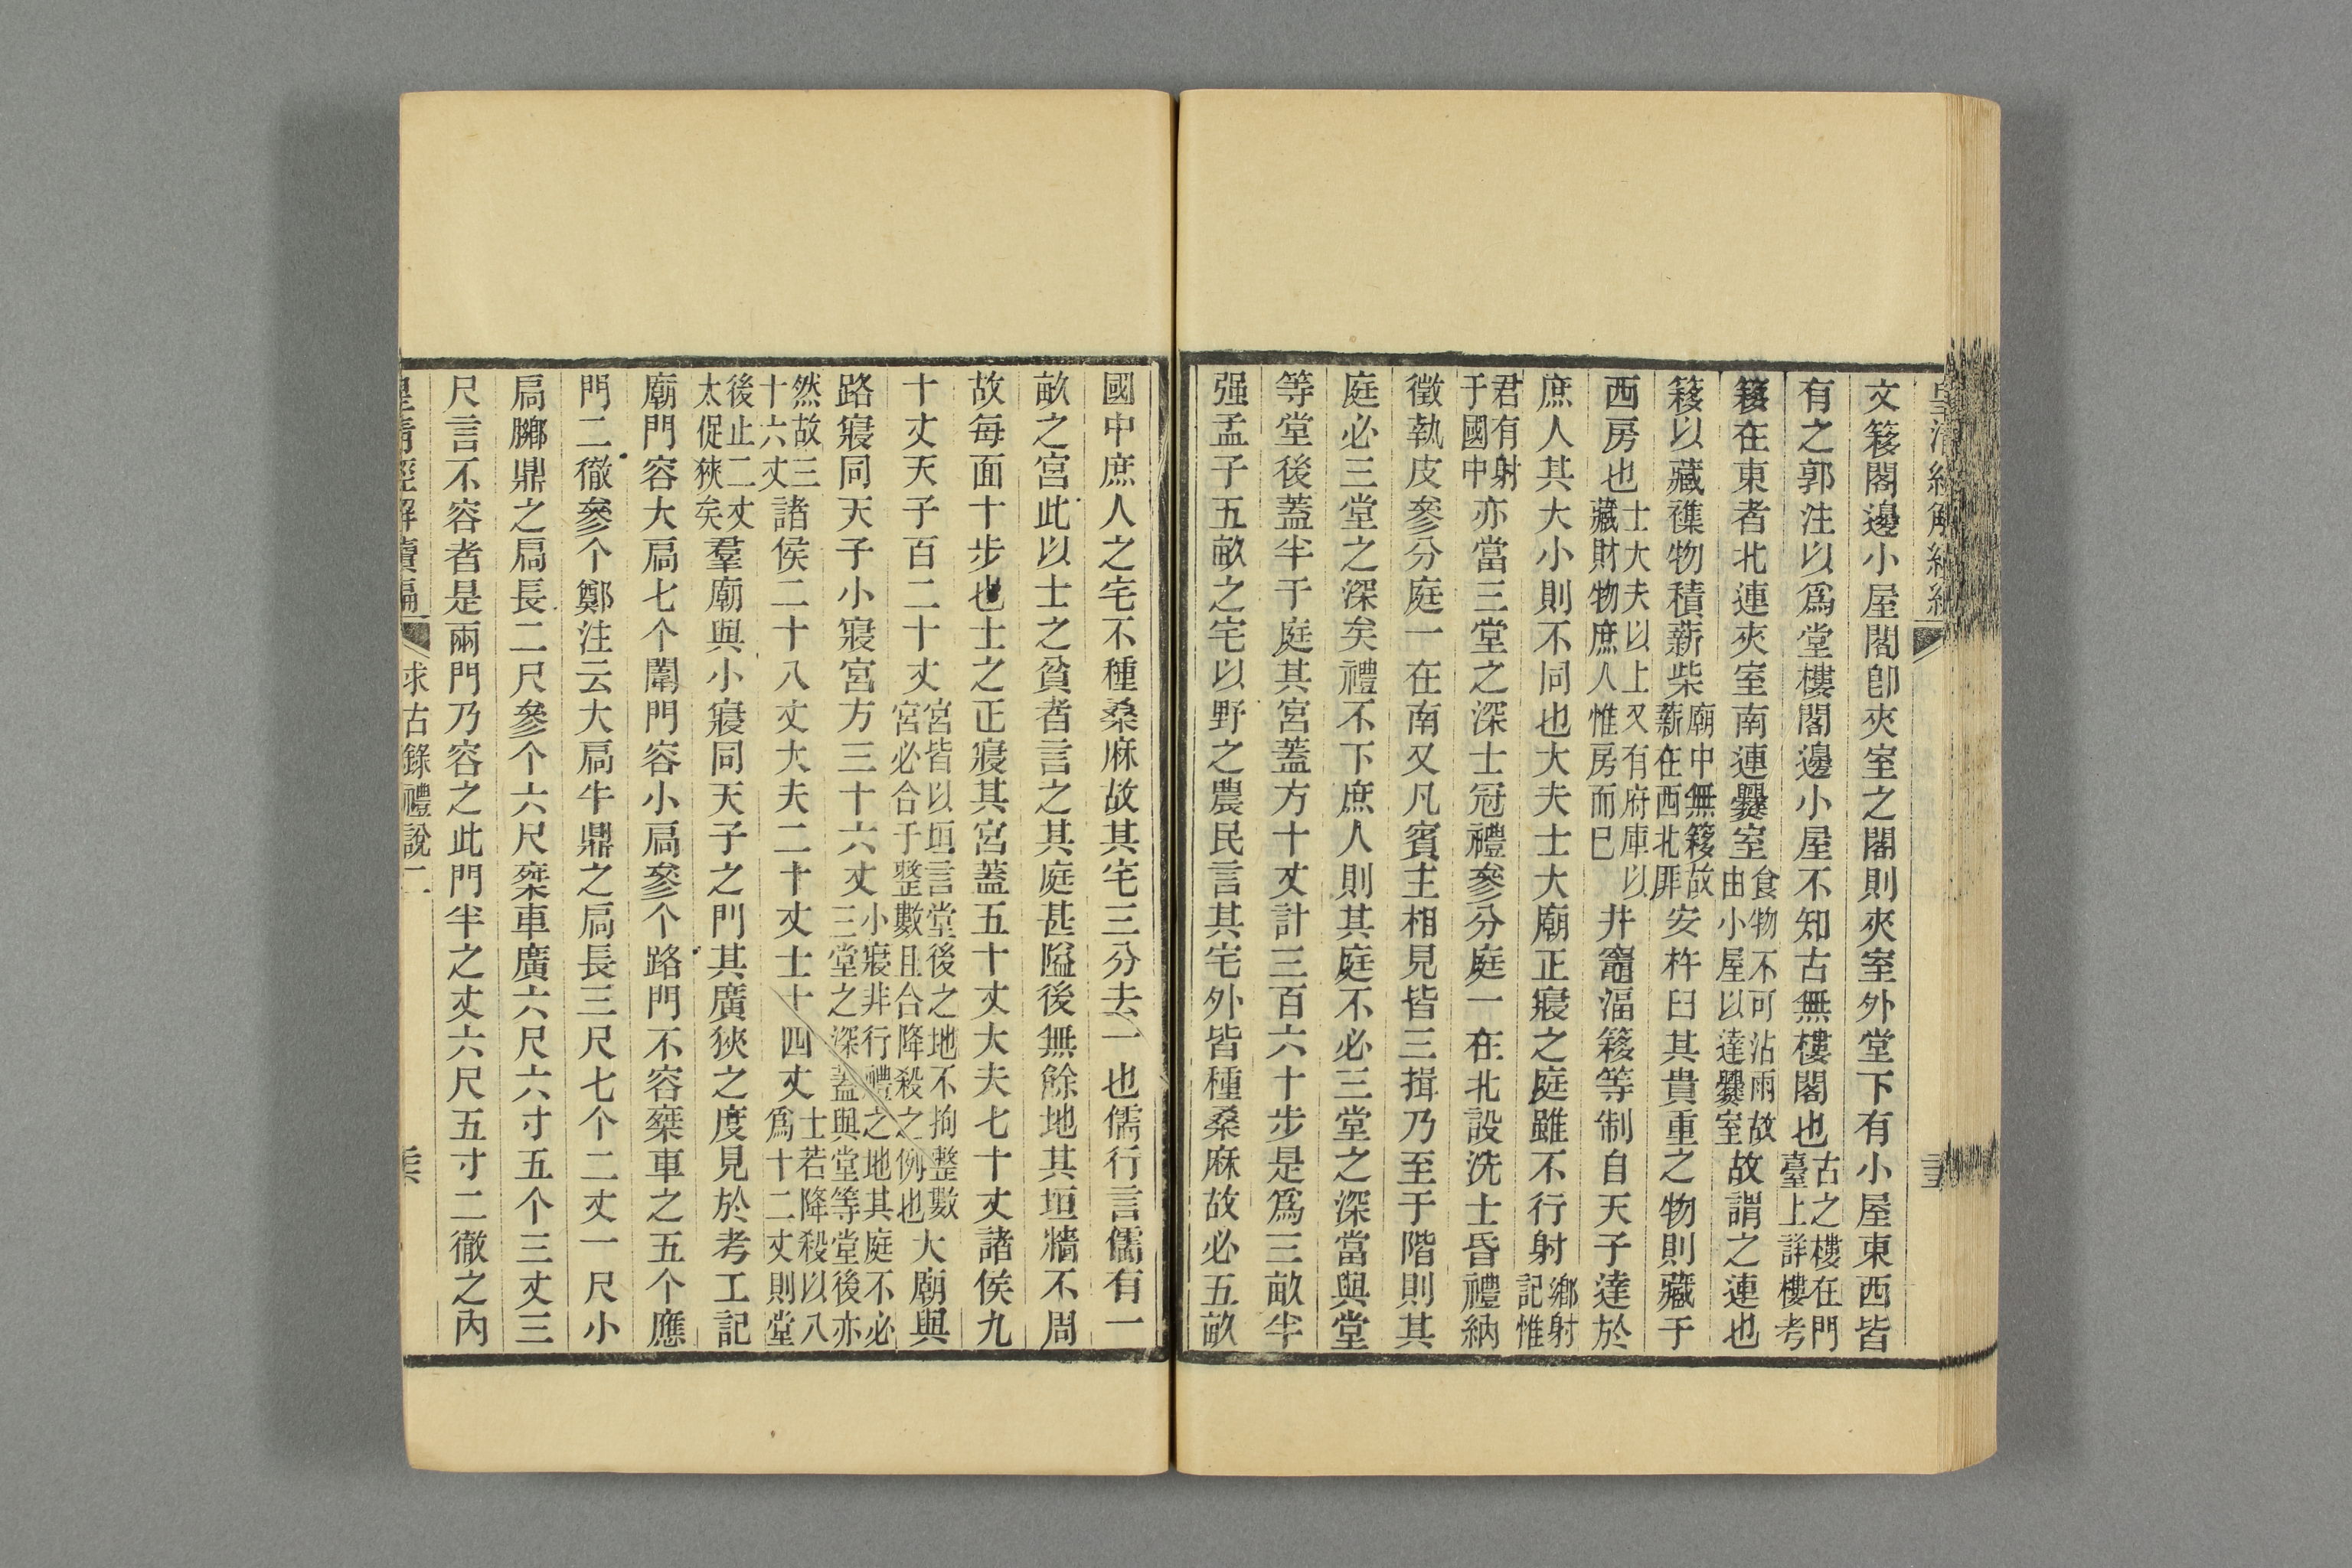 文簃閣邊小屋閣卽夾室之閣則夾室外堂下有小屋東西皆
有之郭注以爲堂樓閣邊小屋不知古無樓閣也古之樓在門臺上詳樓考
簃在東者北連夾室南連爨室食物不可沾雨故由小屋以達爨室故謂之連也
簃以藏襍物積薪柴廟中無簃故薪在西北厞安杵臼其貴重之物則藏于
西房也士大夫以上又有府庫以藏財物庶人惟房而已井竈湢簃等制自天子達於
庶人其大小則不同也大夫士大廟正寢之庭雖不行射鄉射記惟
君有射于國中亦當三堂之深士冠禮參分庭一在北設洗士昏禮納
徵執皮參分庭一在南又凡賓主相見皆三揖乃至于階則其
庭必三堂之深矣禮不下庶人則其庭不必三堂之深當與堂
等堂後蓋半于庭其宮蓋方十丈計三百六十步是爲三畝半
强孟子五畝之宅以野之農民言其宅外皆種桑麻故必五畝
國中庶人之宅不種桑麻故其宅三分去一也儒行言儒有一
畝之宮此以士之貧者言之其庭甚隘後無餘地其垣牆不周
故每面十步也士之正寢其宮蓋五十丈大夫七十丈諸侯九
十丈天子百二十丈宮皆以垣言堂後之地不拘整數宮必合于整數且合降殺之例也大廟與
路寢同天子小寢宮方三十六丈小寢非行禮之地其庭不必三堂之深蓋與堂等堂後亦
然故三十六丈諸侯二十八丈大夫二十丈士十四丈士若降殺以八爲十二丈則堂
後止二丈太促狹矣羣廟與小寢同天子之門其廣狹之度見於考工記
廟門容大扃七个闈門容小扃參个路門不容椉車之五个應
門二徹參个鄭注云大扃牛鼎之扃長三尺七个二丈一尺小
扃膷鼎之扃長二尺參个六尺椉車廣六尺六寸五个三丈三
尺言不容者是兩門乃容之此門半之丈六尺五寸二徹之內
皇清經解續編 求古錄禮說二